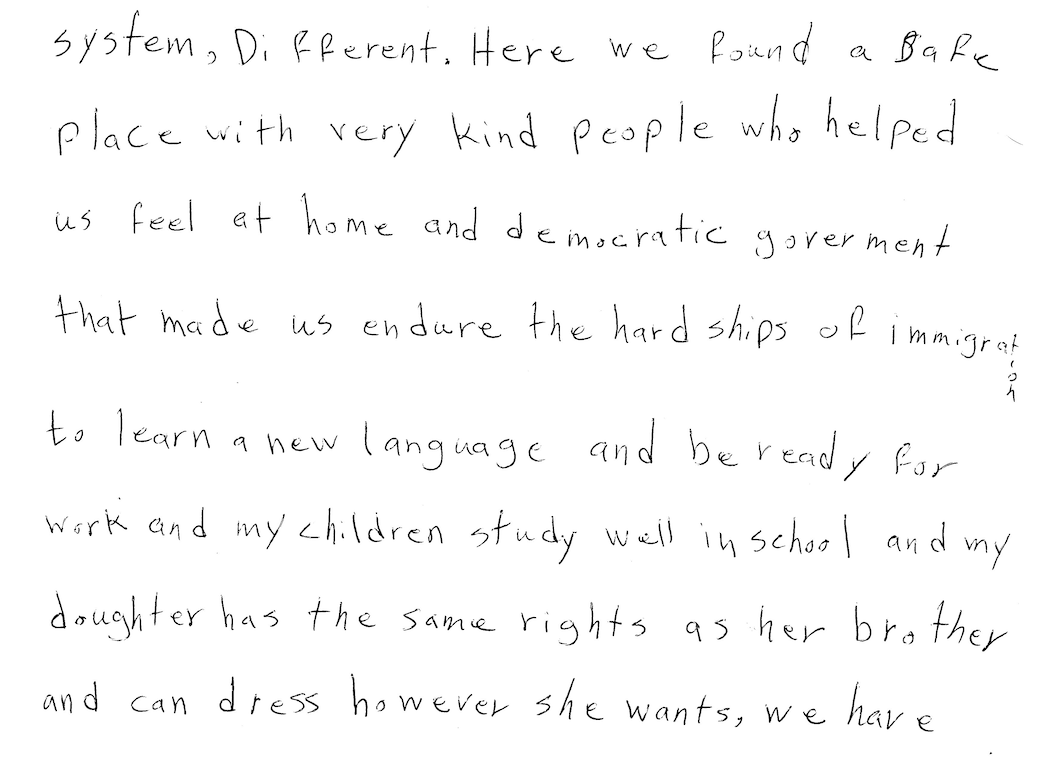 system, Different. Here we found a Safe
place with very kind people who helped
us feel at home and democratic goverment
that made us endure the hard ships of immigration
to learn a new language and be ready for
work and my children study well in school and my
doughter has the same rights as her brother
and can dress however she wants, we have